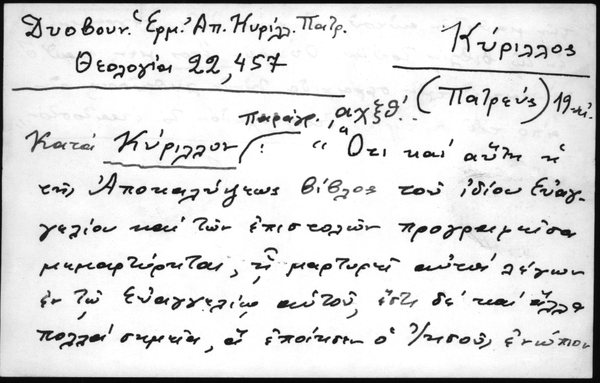 Δυοβουν. Ἑρμ. Ἀπ. Κυρίλλ. Πατρ.
Κύριλλος
Θεολογία 22,457
(Πατρεύς) 19
παράγρ. ,αχξθ΄.
Κατά Κύριλλον : "Ὅτι καί αὕτη ἡ
τῆς Ἀποκαλύψεως βίβλος τοῦ ἰδίου Εὐαγ-
γελίου καί τῶν ἐπιστολῶν προγραφεῖσα
μεμαρτύρηται, ᾗ μαρτυρεῖ αὐτός λέγων
ἐν τῷ Εὐαγγελίῳ αὐτοῦ, ἔστι δέ καί ἄλλα
πολλά σημεῖα, ἅ ἐποίησεν ὁ Ἰησοῦς ἐνώπιον